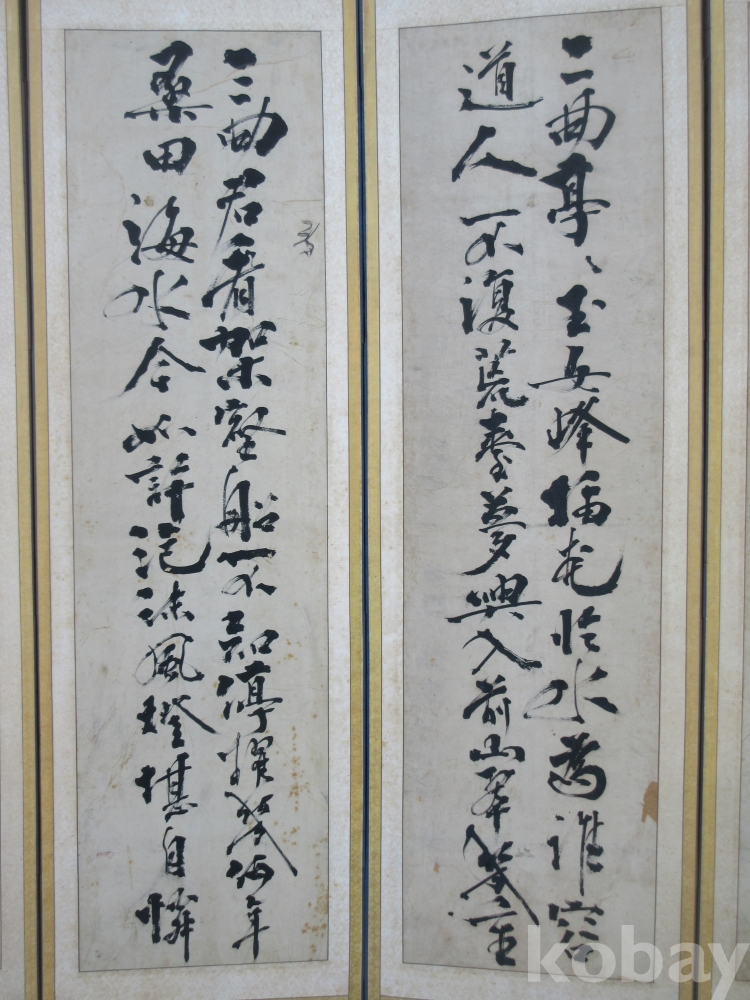 二曲亭〻玉女峰插花臨水爲誰容
道人不復荒臺夢興入前山翠幾重
三曲君看架壑船不知停櫂幾何年
桑田海水今如許泡沫風燈堪自憐
kobay